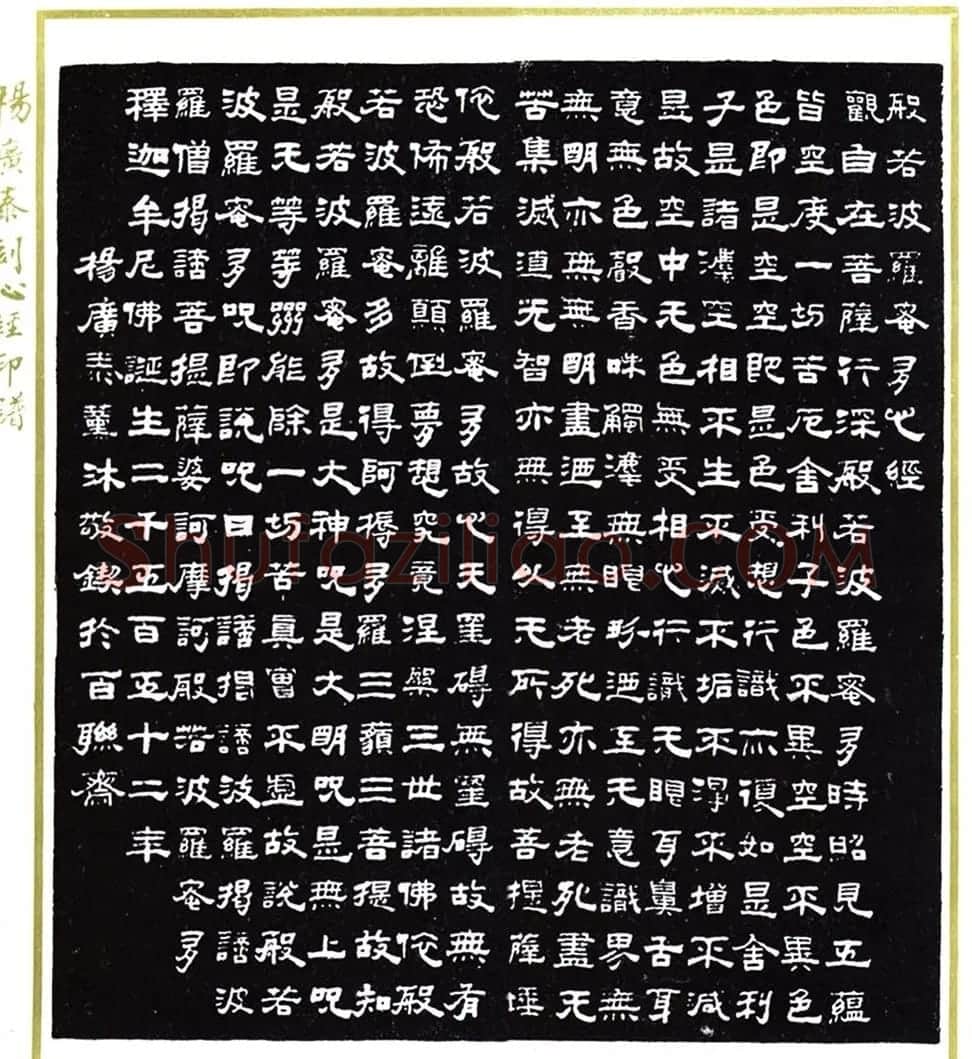 般若波羅蜜多心經
觀自在菩薩行深般若波羅蜜多時昭見五蘊
皆空度一切苦厄舍利子色不異空空不異色
色即是空空即是色受想行識亦復如是舍利
子是諸灋空相不生不滅不垢不淨不增不減
是故空中无色無受相心行識无眼耳鼻舌耳
意無色聲香味觸灋無眼界迺至无意識界無
無明亦無無明盡迺至無老死亦無老死盡无
苦集滅道无智亦無得以无所得故菩提薩埵
依般若波羅蜜多故心无罣碍無罣碍故無有
恐怖遠離顛倒夢想究竟涅槃三世諸佛依般
若波羅蜜多故得阿耨多羅三藐三菩提故知
般若波羅蜜多是大神咒是大明咒是無上咒
是无等等咒能除一切苦真實不虛故說般若
波羅蜜多咒即說咒曰揭諦揭諦波羅揭諦波
羅僧揭諦菩提薩婆訶摩訶般若波羅蜜多
釋迦牟尼佛誕生二千五百五十二年
楊廣泰薰沐敬鍥於百聯齋
楊廣泰刻心經印譜
Shufaziliao.COM